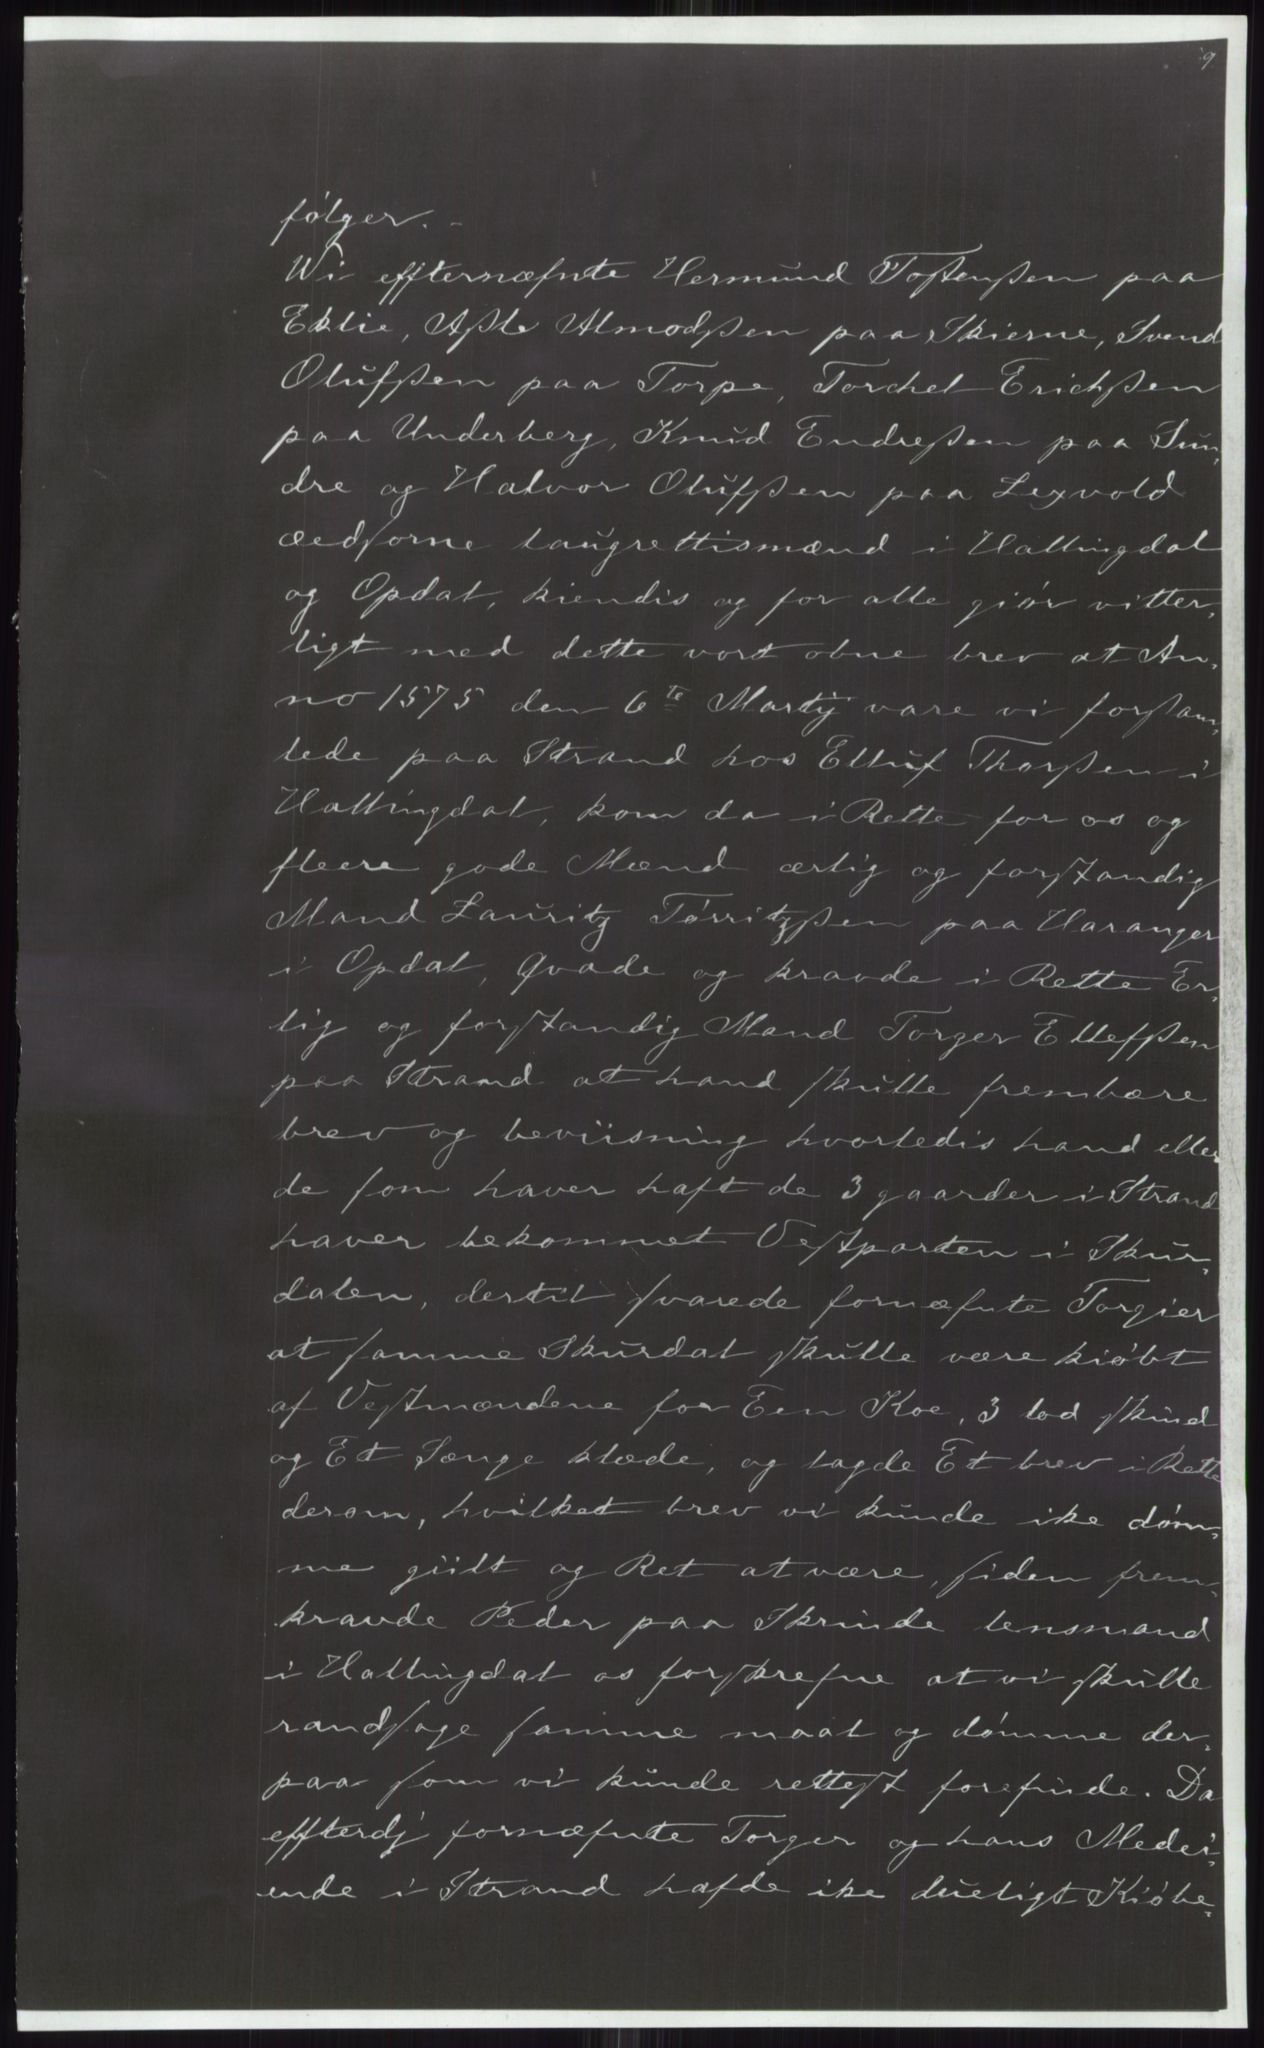 9
følger. -
Wi effternæfnte Hermund Tostenßen paa
Eklie, Aßle Almodßen paa Skierne, Svend
Olufßen paa Torpe, Torchel Erichßen
paa Underberg, Knud Endreßen paa Sun,
dre og Halvor Olufßen paa Lexvold
ædsorne laugrettismænd i Hallingdal
og Opdal, kiendis og for alle giør vitter,
ligt med dette vort obne brev at An,
no 1575 den 6te Martij vare vi forsam,
lede paa Strand hos Elluf Thorßen i
Hallingdal, kom da i Rette for os og
fleere gode Mænd ærlig og forstandig
Mand Lauritz Tørritzßen paa Haranger
i Opdal, Qvade og kravde i Rette Er,
lig og forstandig Mand Torger Ellefßen
paa Strand at hand skulle frembære
brev og beviisning hvorledis hand eller
de som haver haft de 3 gaarder i Strand
haver bekommet Vestparten i Skur,
dalen, dertil svarede fornæfnte Torgier
at samme Skurdal skulle være kiøbt
af Vestmændene for Een Koe, 3 lod skind
og Et Sænge klæde, og lagde Et brev i Rette
derom, hvilket brev vi kunde ike døm,
me giilt og Ret at være, siden frem,
kravde Peder paa Skrinde lensmand
i Hallingdal os forskrefne at vi skulle
randsage samme maal og dømme der,
paa som vi kunde rettest forefinde. Da
effterdj fornæfnte Torger og hans Medei,
ende i Strand hafde ike dueligt Kiøbe,